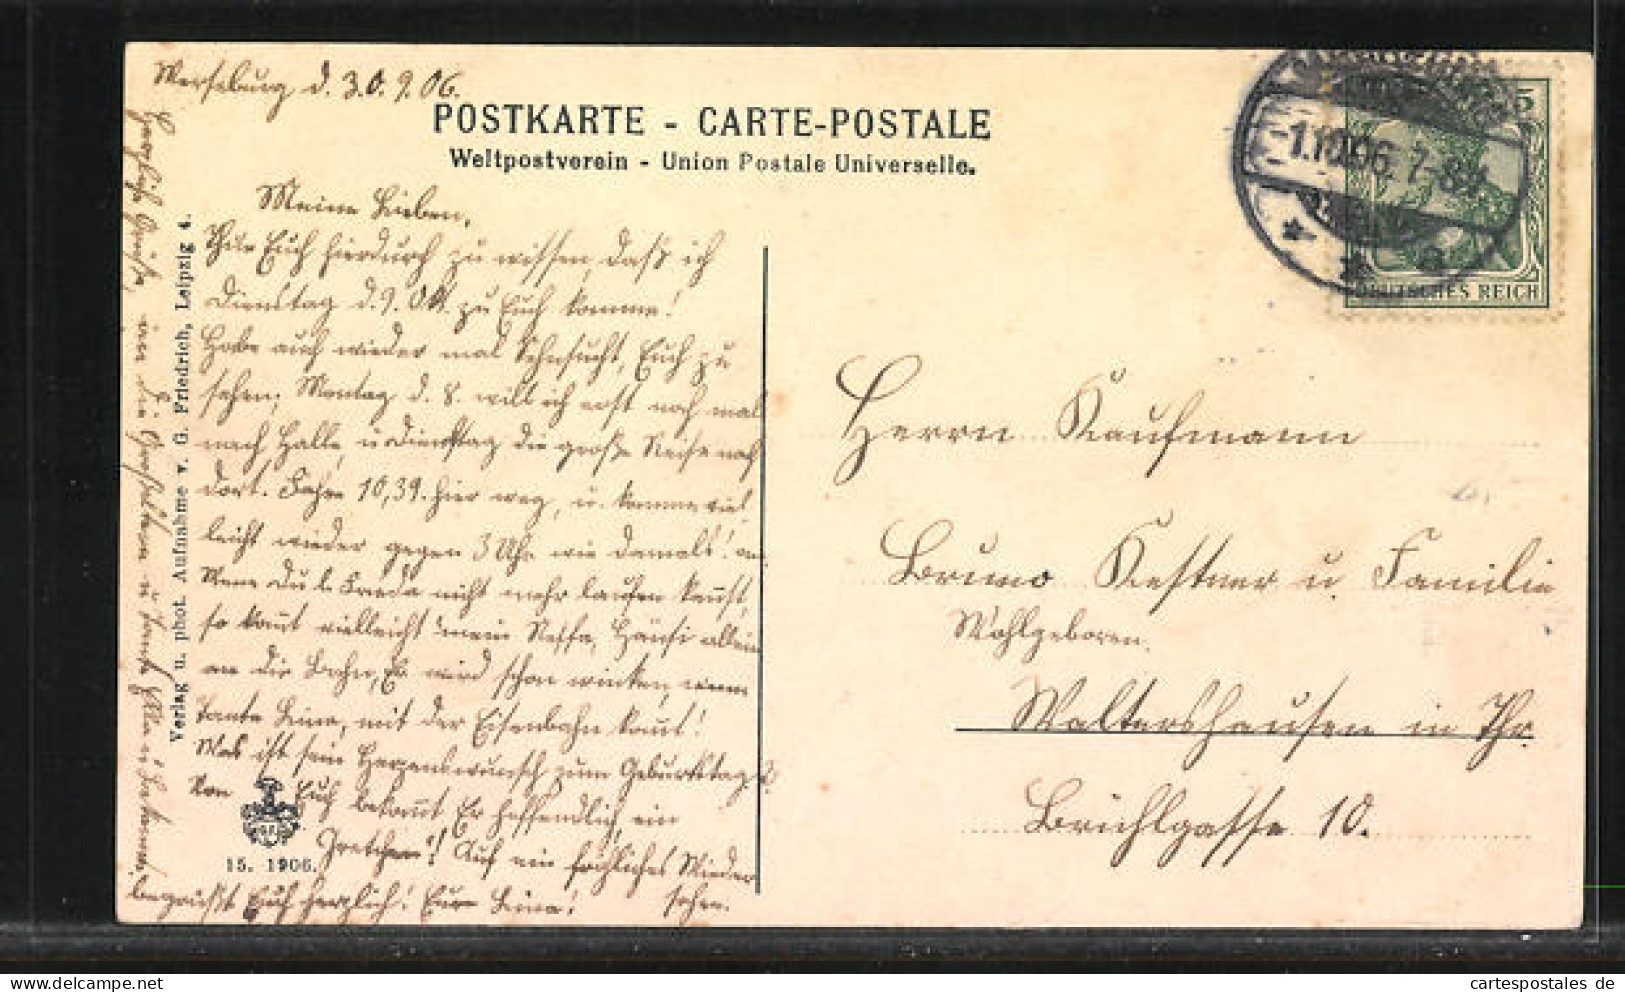 Merseburg d. 30.9.06.
POSTKARTE - CARTE-POSTALE
Weltpostverein - Union Postale Universelle.
Meine Lieben,
Thue Euch hierdurch zu wissen, daß ich
Dienstag d. 9. Okt. zu Euch komme!
Habe auch wieder mal Sehnsucht, Euch zu
sehen; Montag d. 8. will ich erst noch mal
nach Halle, u Dienstag die große Reise nach
dort. Fahre 10,39. hier weg, u. komme viel
leicht wieder gegen 3 Uhr wie damals!
Wenn Du l. Frieda nicht mehr laufen kannst,
so kommt vielleicht mein Neffe, Hänsi allein
an die Bahn, Er wird schon winken, wenn
Tante Lina, mit der Eisenbahn kommt!
Was ist sein Herzenswunsch zum Geburtstag?
Von Euch bekommt Er hoffendlich, ein
Gretchen! Auf ein fröhliches Wieder
sehen.
begrüßt Euch herzlich! Eure Lina!
Herzliche Grüße, an die Großeltern u Tante
Verlag u. phot. Aufnahme v. G. Friedrich, Leipzig 4.
15. 1906.
-1.10.06. 7-8V
5
DEUTSCHES REICH
Herrn Kaufmann
Bruno Kestner u. Familie
Wohlgeboren.
Waltershausen in Thr.
Brühlgasse 10.
cartespostales de
www.cartespostales.com